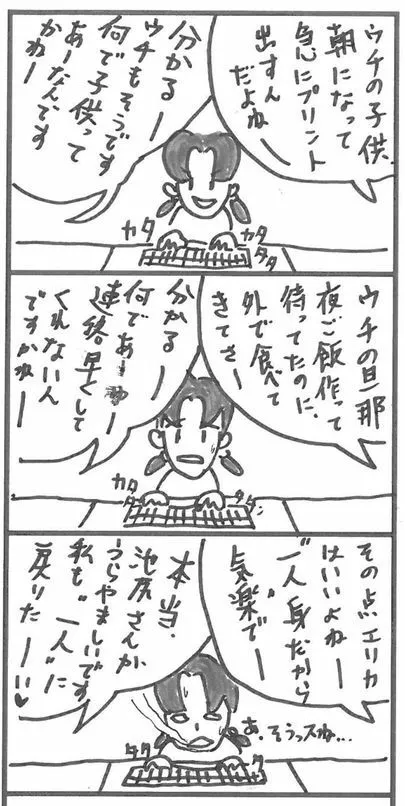 ウチの子供、
朝になって
急にプリント
出すん
だよねー
分かるー
ウチもそうです
何で子供って
あーなんです
かねー
カタ
カタ
タタ
ウチの旦那
夜ご飯作って
待ってたのに、
外で食べて
きてさー
分かるー
何であーゆー
連絡早くして
くれないん
ですかねー
カタ
タ
その点エリカ
はいいよねー
"一人"身だから
気楽でー
本当、
池尻さんが
うらやましいです
私も"一人"に
戻りたーい♥
あ、そうっスね…
タタ
タ